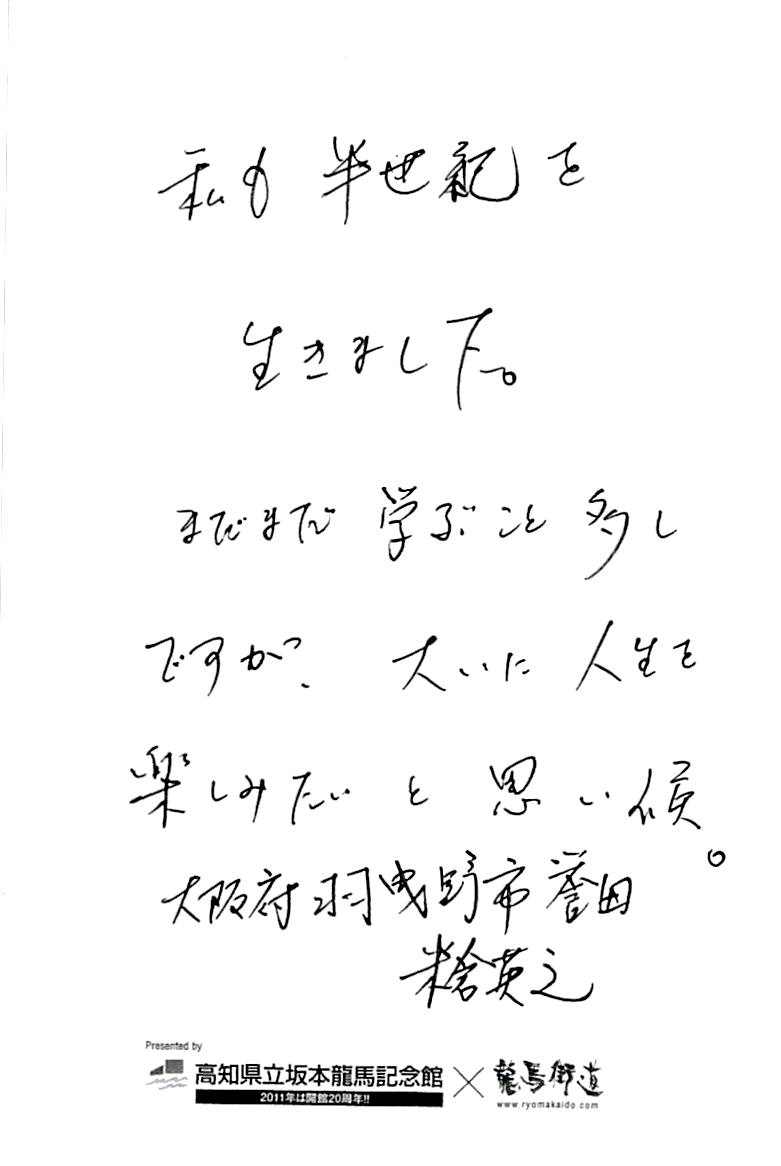 私も 半世紀を
生きました。
まだまだ 学ぶこと 多し
ですが、 大いに 人生を
楽しみたい と 思い候。
大阪府羽曳野市誉田
米倉英之
Presented by
高知県立坂本龍馬記念館 × 龍馬街道
2011年は開館20周年!!
www.ryomakaido.com